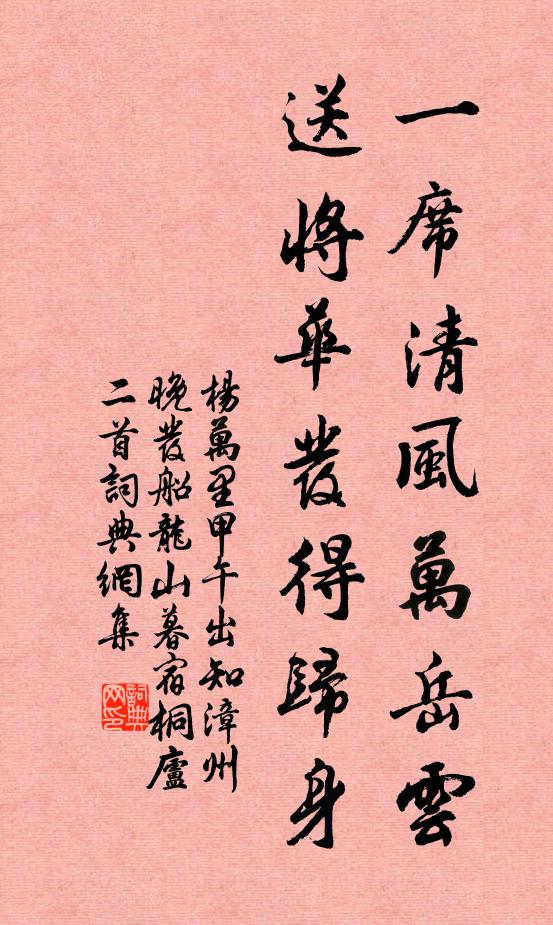 一席清風萬岳雲
送將華發得歸身
楊萬里甲午出知漳州
晚發船龍山暮宿桐廬
二首詞典網集
詞典网印